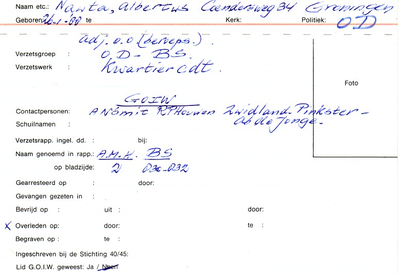 Naam etc.: Nauta, Albertus Coendersweg 34 Groningen
Geboren: te Kerk: Politiek: O D
adj. o.o (beroeps.).
Verzetsgroep : O.D - BS.
Verzetswerk : Kwartier Cdt.
Foto
GOIW
Contactpersonen: ANSmit RPHouwen Zuidland-Pinkster-
Schuilnaam : Ab de Jonge-
Verzetsrapp. ingel. dd. : bij:
Naam genoemd in rapp.: A.M.K. BS
op bladzijde: 2 030-032
Gearresteerd op : door:
Gevangen gezeten in :
Bevrijd op : uit : door:
x Overleden op: : door: te :
Begraven op : te :
Ingeschreven bij de Stichting 40/45:
Lid G.O.I.W. geweest: Ja / Neen